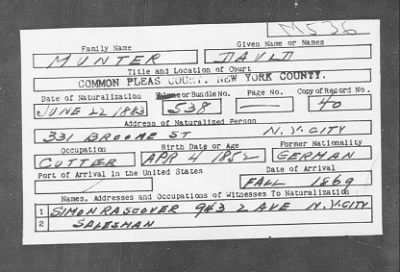 M536
Family Name Given Name or Names
MUNTER DAVID
Title and Location of Court
COMMON PLEAS COURT, NEW YORK COUNTY.
Date of Naturalization Volume or Bundle No. Page No. Copy of Record No.
JUNE 22 1883 538 — 40
Address of Naturalized Person
331 BROOME ST N.Y. CITY
Occupation Birth Date or Age Former Nationality
CUTTER APR 4 1852 GERMAN
Port of Arrival in the United States Date of Arrival
FALL 1869
Names, Addresses and Occupations of Witnesses To Naturalization
1 SIMON RASCOVER 943 2 AVE N.Y. CITY
2 SALESMAN